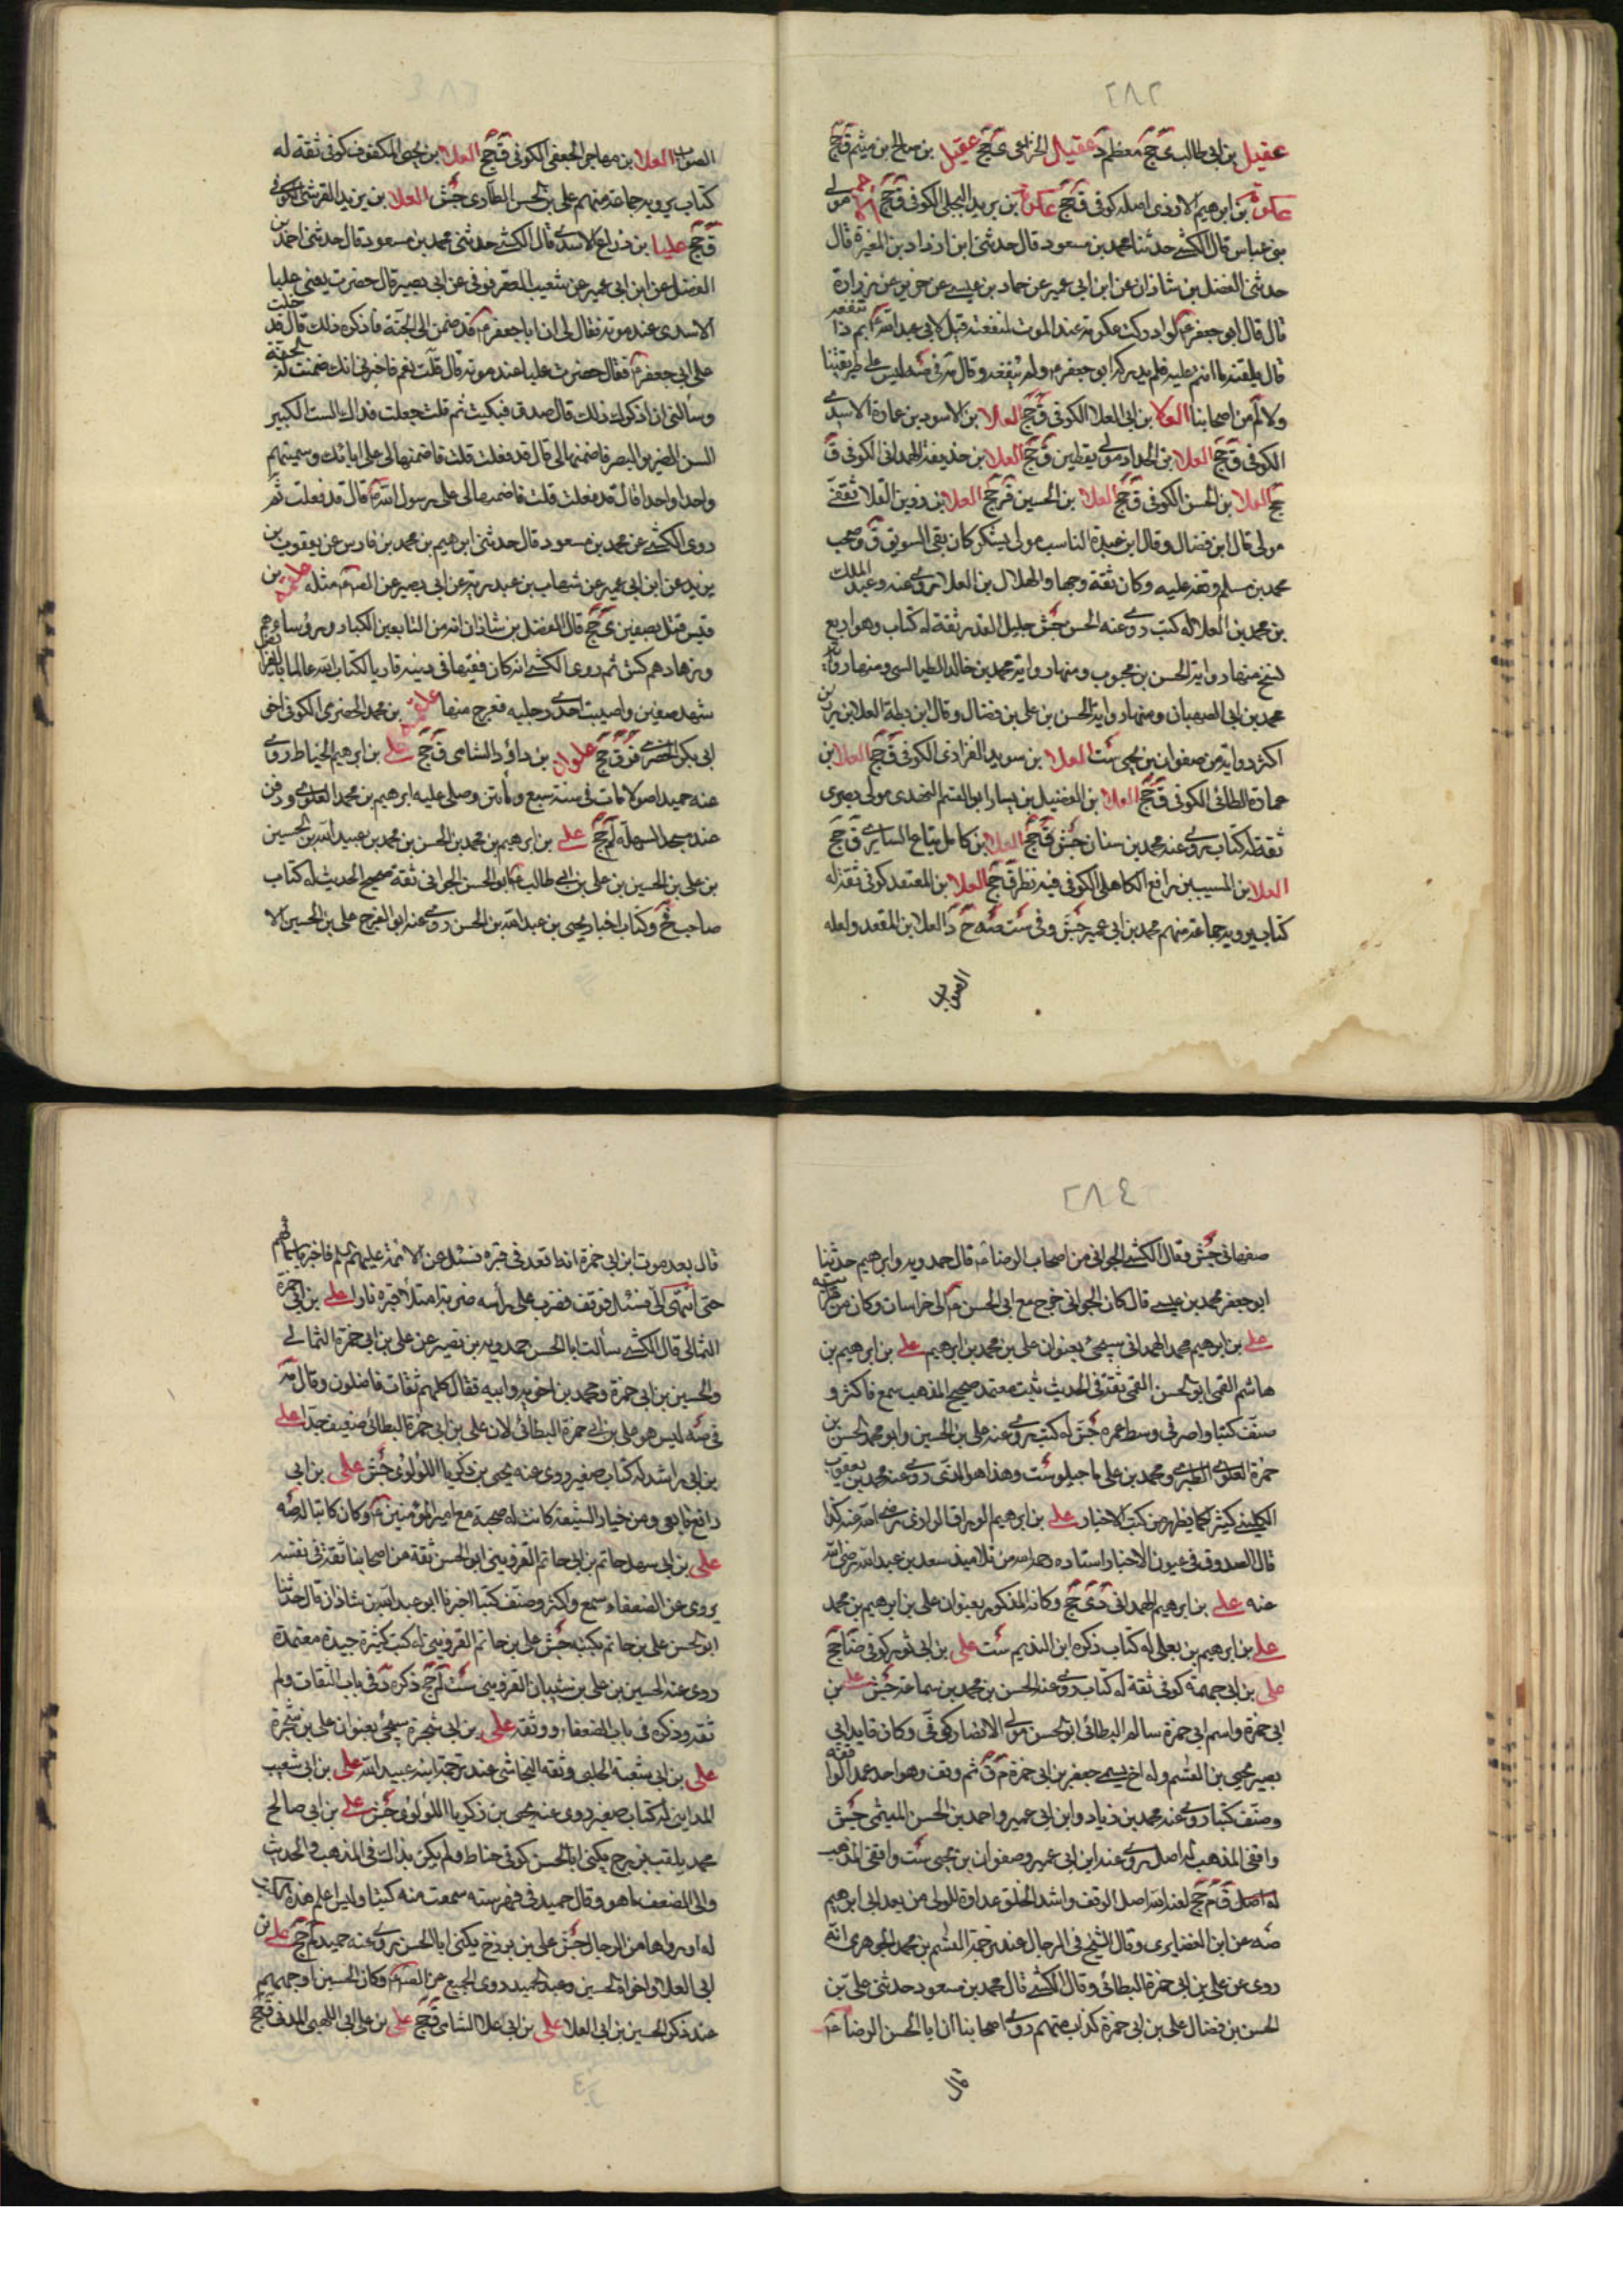 ٢٨٢
عقيل بن ابي طالب ى جخ معظم د عقيل الخزاعى ى جخ عقيل بن صالح بن ميثم ق جخ
عكرمة بن ابرهيم الازدى اصله كوفى ق جخ عكرمة بن بريد البجلى الكوفى ق جخ مولى
بن عباس قال الكشى حدثنا محمد بن مسعود قال حدثنى ابن ازداد بن المغيرة قال
حدثنى الفضل بن شاذان عن ابن ابى عمير عن حماد بن عيسى عن حريز عن زرارة
قال قال ابو جعفر ع لو ادركت عكرمة عند الموت لنفعته قيل لابى عبد الله ع بم ذا تنفعه
قال يلقنه ما انتم عليه فلم يدركه ابو جعفر ع ولم ينفعه وقال مة فى صه ليس على طريقتنا
ولا من اصحابنا العلا بن ابى العلا الكوفى ق جخ العلا بن الاسود بن عمارة الاسدى
الكوفى ق جخ العلا بن الحداد مولى يقطين ق جخ العلا بن حذيفة الهمدانى الكوفى ق
جخ العلا بن الحسن الكوفى ق جخ العلا بن الحسين ق جخ العلا بن رزين القلا ثقفى
مولى قال ابن فضال وقال ابن عبدة الناسب مولى يشكر كان يقلى السويق ق وصحب
محمد بن مسلم وتفقه عليه وكان ثقة وجها والهلال بن العلا روى عنه وعبد الملك
بن محمد بن العلا له كتب روى عنه الحسن جش جليل القدر ثقة له كتاب وهو اربع
نسخ منها رواية الحسن بن محبوب ومنها رواية محمد بن خالد الطيالسى ومنها رواية
محمد بن ابى الصهبان ومنها رواية الحسن بن على بن فضال وقال ابن بطة العلا بن رزين
اكثر رواية من صفوان بن يحيى ست العلا بن سويد الفزارى الكوفى ق جخ العلا بن
عمارة الطائى الكوفى ق جخ العلا بن الفضيل بن يسار ابو القسم النهدى مولى بصرى
ثقة له كتاب يروى عنه محمد بن سنان جش ق جخ العلا بن كامل بياع السابرى ق جخ
العلا بن المسيب بن رافع الكاهلى الكوفى فيه نظر ق جخ العلا بن المعتقد كوفى ثقة له
كتاب يرويه جماعة منهم محمد بن ابى عمير جش وفى ست صه ح د العلا بن المقعد ولعله
الصواب
الصواب العلا بن مهاجر الجعفى الكوفى ق جخ العلا بن يحيى المكفوف كوفى ثقة له
كتاب يرويه جماعة منهم على بن الحسن الطاطرى جش العلا بن يزيد القرشى الكوفى
ق جخ علبا بن دراع الاسدى قال الكشى حدثنى محمد بن مسعود قال حدثنى احمد بن
الفضل عن ابن ابى عمير عن شعيب العقرقوفى عن ابى بصير قال حضرت يعنى علبا
الاسدى عند موته فقال لى ان ابا جعفر ع قد ضمن لى الجنة فاذكره ذلك قال قد خلت
على ابى جعفر ع فقال حضرت علبا عند موته قال قلت نعم فاخبرنى انك ضمنت له الجنة
وسألنى ان اذكرك ذلك قال صدق فبكيت ثم قلت جعلت فداك الست الكبير
السن الضرير البصر فاضمنها لى قال قد فعلت قلت فاضمنها لى على ابائك وسميتهم
واحدا واحدا قال قد فعلت قلت فاضمنها لى على رسول الله ص قال قد فعلت ثم
روى الكشى عن محمد بن مسعود قال حدثنى ابرهيم بن محمد بن فارس عن يعقوب بن
يزيد عن ابن ابى عمير عن شهاب بن عبد ربه عن ابى بصير عن الصم مثله علقمة بن
قيس قتل بصفين ى جخ قال الفضل بن شاذان انه من التابعين الكبار ورؤسائهم
وزهادهم كش ثم روى الكشى انه كان فقيها فى دينه قاريا لكتاب الله عالما بالفرايض
شهد صفين واصيبت احدى رجليه فعرج منها علقمة بن محمد الحضرمى الكوفى اخو
ابى بكر الحضرمى قر ق جخ علوان بن داؤد الشامى ق جخ على بن ابرهيم الخياط روى
عنه حميد اصولا مات فى سنة سبع ومأتين وصلى عليه ابرهيم بن محمد العلوى ودفن
عند مسجد السهلة لم جخ على بن ابرهيم بن محمد بن الحسن بن محمد بن عبيد الله بن الحسين
بن على بن الحسين بن على بن ابى طالب ع ابو الحسن الجوانى ثقة صحيح الحديث له كتاب
صاحب فخ وكتاب اخبار يحيى بن عبد الله بن الحسن روى عنه ابو الفرج على بن الحسين الا
٢٨٤
صفهانى جش وقال الكشى الجوانى من اصحاب الرضا ع قال حمدويه وابرهيم حدثنا
ابو جعفر محمد بن عيسى قال كان الجوانى خرج مع ابى الحسن ع الى خراسان وكان من قرابته
على بن ابرهيم محمد الهمدانى سيجئ بعنوان على بن محمد بن ابرهيم على بن ابرهيم بن
هاشم القمى ابو الحسن القمى ثقة فى الحديث ثبت معتمد صحيح المذهب سمع فاكثر و
صنف كتبا واضر فى وسط عمره جش له كتب روى عنه على بن الحسين وابو محمد الحسن بن
حمزة العلوى الطبرى ومحمد بن على ماجيلويه ست وهذا هو الذى روى عنه محمد بن يعقوب
الكلينى كثيرا كما يظهر من كتب الاخبار على بن ابرهيم الوراق الرازى
قال الصدوق فى عيون الاخبار استاده من تلاميذ سعد بن عبد الله رضى الله
عنه على بن ابرهيم الهمدانى دى جخ وكانه المذكور بعنوان على بن ابرهيم بن محمد
على بن ابرهيم بن يعلى له كتاب ذكره ابن النديم ست على بن ابى ثور كوفى ضا جخ
على بن ابى جهمة كوفى ثقة له كتاب روى عنه الحسن بن محمد بن سماعة جش على بن
ابى حمزة واسم ابى حمزة سالم البطائنى ابو الحسن مولى الانصار كوفى وكان قايد ابى
بصير يحيى بن القسم وله اخ يسمى جعفر بن ابى حمزة م ق ثم وقف وهو احد عمد الواقفة
وصنف كتبا روى عنه محمد بن زياد وابن ابى عمير واحمد بن الحسن الميثمى جش
واقفى المذهب له اصل روى عنه ابن ابى عمير وصفوان بن يحيى ست واقفى المذهب
له اصل ق م جخ لعنه الله اصل الوقف واشد الخلق عداوة للولى من بعد ابى ابرهيم
صه عن ابن الغضايرى وقال الشيخ فى الرجال عند ترجمة القسم بن محمد الجوهرى انه
روى عن على بن ابى حمزة البطائنى وقال الكشى قال محمد بن مسعود حدثنى على بن
الحسن بن فضال على بن ابى حمزة كذاب متهم روى اصحابنا ان ابا الحسن الرضا ع
قال
قال بعد موت ابن ابى حمزة انه اقعد فى قبره فسئل عن الائمة عليهم السلم فاخبر باسمائهم
حتى انتهى الى فسئل فوقف فضرب على رأسه ضربة امتلأ قبره نارا على بن ابى حمزة
الثمالى قال الكشى سألت ابا الحسن حمدويه بن نصير عن على بن ابى حمزة الثمالى
والحسين بن ابى حمزة ومحمد بن اخويه وابيه فقال كلهم ثقات فاضلون وقال مة
فى صه ليس هو على بن ابى حمزة البطائنى لان على بن ابى حمزة البطائنى ضعيف جدا على
بن ابى راشد له كتاب صغير روى عنه يحيى بن زكريا اللؤلؤى جش على بن ابى
رافع تابعى ومن خيار الشيعة كانت له صحبة مع امير المؤمنين ع وكان كاتبا له صه
على بن ابى سهل حاتم بن ابى حاتم القزوينى ابو الحسن ثقة من اصحابنا ثقة فى نفسه
يروى عن الضعفاء سمع واكثر وصنف كتبا اخبرنا ابو عبد الله بن شاذان قال حدثنا
ابو الحسن على بن حاتم بكتبه جش على بن حاتم القزوينى له كتب كثيرة جيدة معتمدة
روى عنه الحسين بن على بن شيبان القزوينى ست لم جخ ذكره د فى باب الثقات ولم
ثقة وذكره فى باب الضعفاء ووثقه على بن ابى شجرة سيجئ بعنوان على بن شجرة
على بن ابى شعبة الحلبى وثقه النجاشى عند ترجمة ابنه عبيد الله على بن ابى شعيب
المداينى له كتاب صغير روى عنه يحيى بن زكريا اللؤلؤى جش على بن ابى صالح
محمد يلقب بزرج يكنى ابا الحسن كوفى حناط ولم يكن بذاك فى المذهب والحديث
والى الضعف ما هو وقال حميد فى فهرسته سمعت منه كتبا وليس اعلم هذه الكتب
له او رواها من الرجال جش على بن بزرج يكنى ابا الحسن روى عنه حميد لم جخ على بن
ابى العلا واخواه الحسين وعبد الحميد روى الجميع عن الصم وكان الحسين اوجههم
عند ذكر الحسين بن ابى العلا على بن ابى علا الشامى ق جخ على بن على ابى اللهبى المدنى ق جخ